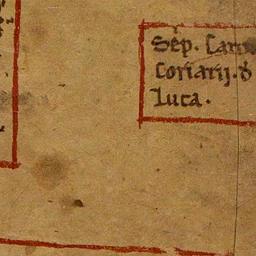 Sep. Cam
Coriarij. d
Luca.